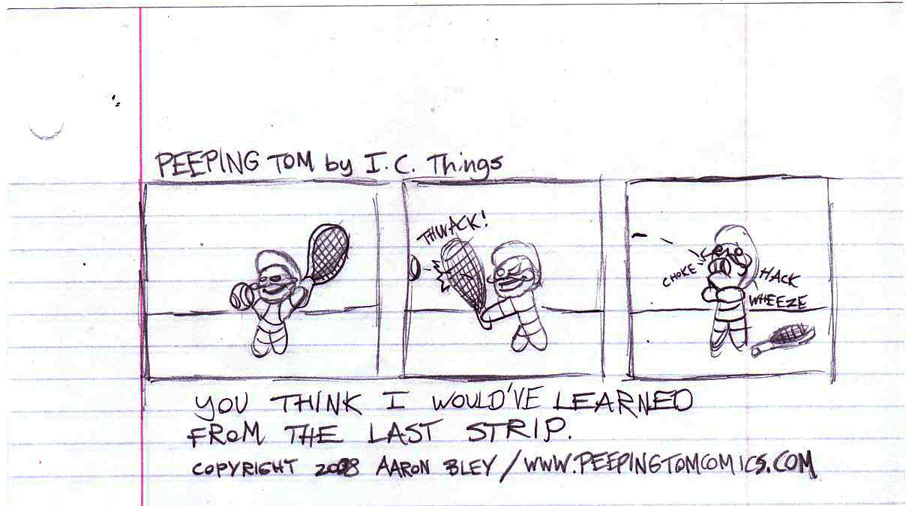 PEEPING TOM by I.C. Things
THWACK!
CHOKE
HACK
WHEEZE
YOU THINK I WOULD'VE LEARNED
FROM THE LAST STRIP.
COPYRIGHT 2008 AARON BLEY / WWW.PEEPINGTOMCOMICS.COM